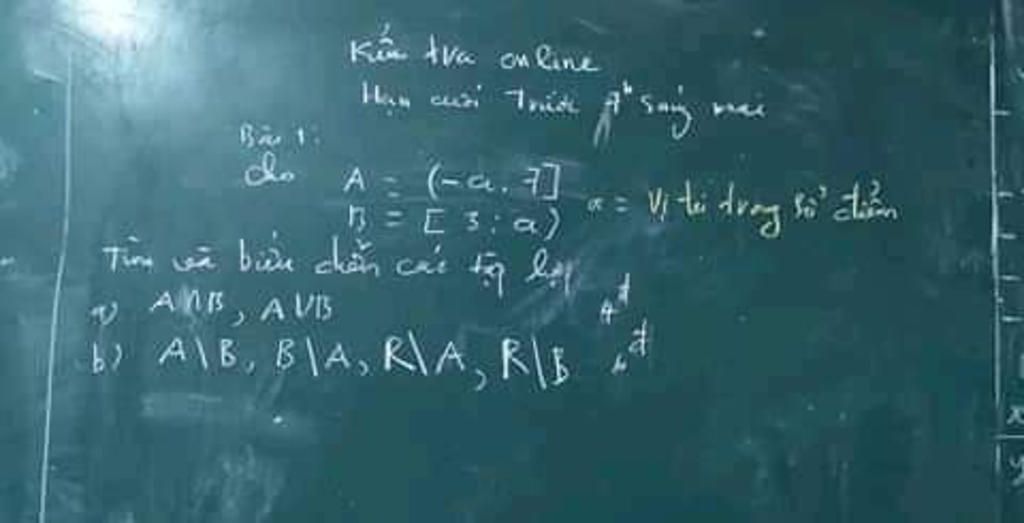 Kiểm tra online
Hạn cuối Trước 7h sáng mai
Bài 1:
Cho A = (-a. 7]
B = [ 3 ; a) a = Vị trí trong sổ điểm
Tìm và biểu diễn các tập hợp
a) A∩B, A∪B 4đ
b) A\B, B\A, R\A, R\B đ